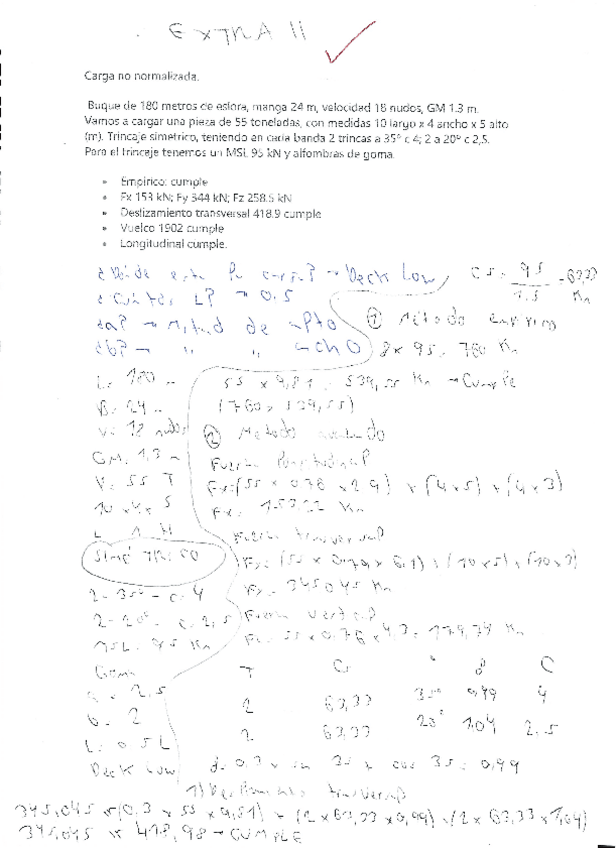 EXTRA 11
Carga no normalizada.
Buque de 180 metros de eslora, manga 24 m, velocidad 18 nudos, GM 1.3 m.
Vamos a cargar una pieza de 55 toneladas, con medidas 10 largo x 4 ancho x 5 alto
(m). Trincaje simétrico, teniendo en cada banda 2 trincas a 35º c 4; 2 a 20º c 2,5.
Para el trincaje tenemos un MSL 95 kN y alfombras de goma.
Empírico: cumple
Fx 153 kN; Fy 344 kN; Fz 258.5 kN
Deslizamiento transversal 418.9 cumple
Vuelco 1902 cumple
Longitudinal cumple.
la carga? → Deck Low
CS = 95 / 1.5 = 63,33 Kn
L? → 0.5
¿a? → Mitad de
① Método empírico
¿b? → " " ancho
8 x 95 = 760 Kn
L = 180 m
55 x 9,81 = 539,55 Kn → Cumple
B = 24 m
(760 > 539,55)
V = 18 nudos
② Método avanzado
GM = 1,3 m
Fuerza longitudinal
55 T
Fx = (55 x 0.76 x 2.9) + (4x5) + (4x3)
10 x 4 x 5
Fx = 153.22 Kn
L A H
Fuerza transversal
Simétrico
2 - 35º - c. 4
Fy = 345.045 Kn
2 - 20º - c. 2,5
Fuerza vertical
MSL = 95 Kn
Fz = 55 x 0.76 x 4,3 = 179,74 Kn
Goma
T CS C
a = 2.5
2 63,33 35º 0,99 4
b = 2
2 63,33 20º 1.04 2.5
L = 0.5 L
Deck Low
35 + cos 35 = 0,99
1) Deslizamiento transversal
345,045 < (0.3 x 55 x 9,81) + (2 x 63,33 x 0,99) + (2 x 63,33 x 1,04)
345,045 < 418,98 → CUMPLE